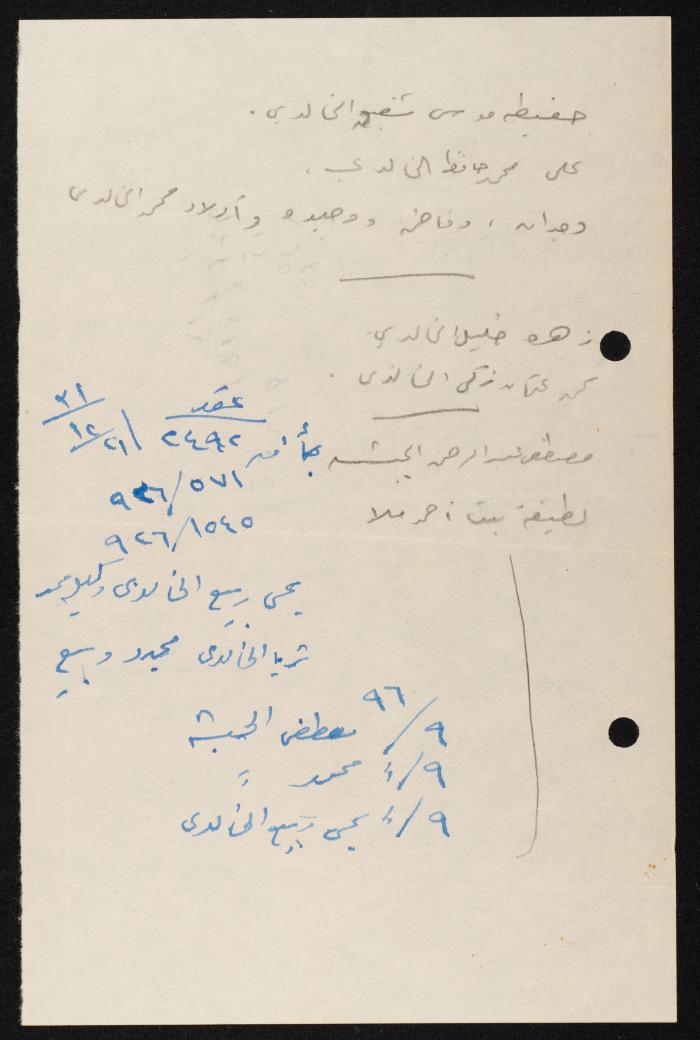 حفيظه موسى شفيق الخالدي .
علي محمد حافظ الخالدي .
وجدان ، وفاطمه ووحيده وأولاد محمد الخالدي
زهره خليل الخالدي
عثمان زكي الخالدي .
مصطفى عبد الرحمن الحبشه
لطيفة بنت احمد ملا
عقد
٣١/١٢/٢١ ٢٤٩٢
٥٧١/٩٢٦
١٥٤٥/٩٢٦
يحيى ربيع الخالدي وكيل محمد
ثريا الخالدي
٩/٩٦ مصطفى الحبشه
٩/〃 محمد 〃
٩/〃 يحيى ربيع الخالدي